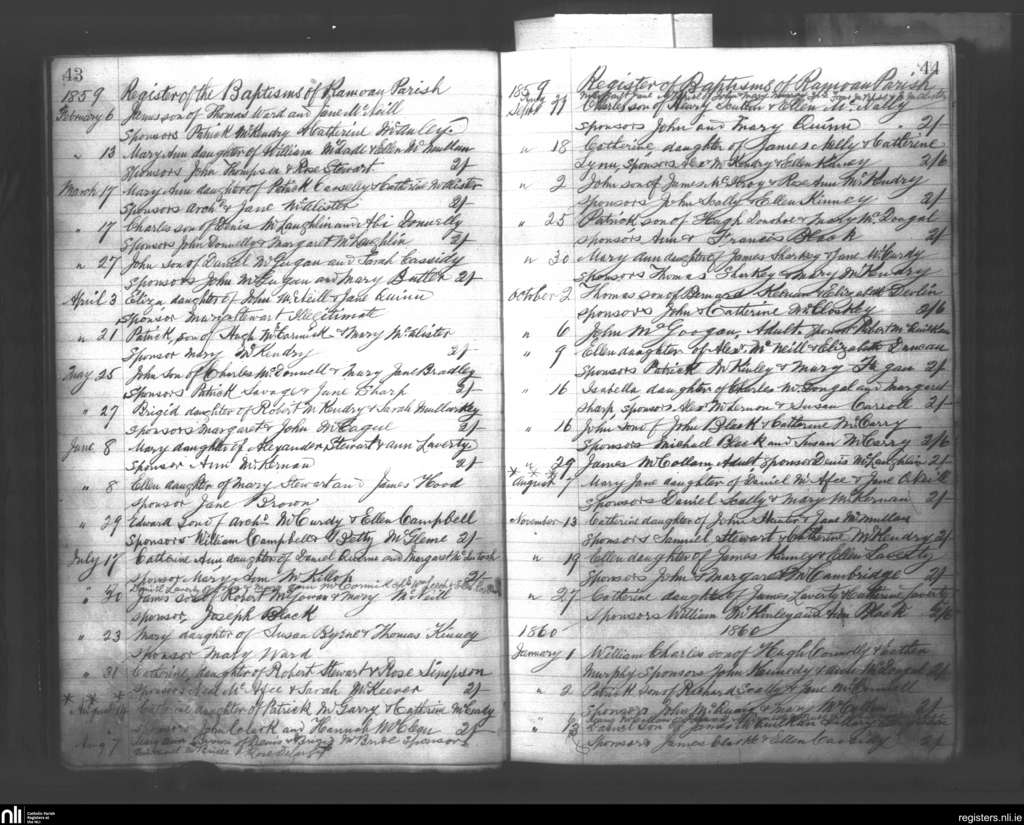 43
1859 Register of the Baptisms of Ramoan Parish
February 6 James son of Thomas Ward and Jane McNeill
Sponsors Patrick McKendry & Catherine McAuley
" 13 Mary Ann daughter of William McDade & Ellen McMullan
Sponsors John Thompson & Rose Stewart 2/
March 17 Mary Ann daughter of Patrick Cassely & Catherine McAlister
Sponsors Archd & Jane McAlister 2/
" 17 Charles son of Denis McLaughlin and Donnelly
Sponsors John Donnelly & Margaret McLaughlin 2/
" 27 John son of Daniel McGugan and Sarah Cassidy
Sponsors John McGugan and Mary Butler 2/
April 3 Eliza daughter of John McNeill & Jane Quinn
Sponsor Mary Stewart Illegitimate
" 21 Patrick son of Hugh McCormick & Mary McAlister
Sponsor Mary McKendry 2/
May 25 John son of Charles McConnell & Mary Jane Bradley
Sponsors Patrick Savage & Jane Sharp
" 27 Brigid daughter of Robert McKendry & Sarah
Sponsors Margaret & John McCaguel 2/
June 8 Mary daughter of Alexander Stewart & Ann Laverty
Sponsor Ann McKernan 2/
" 8 Ellen daughter of Mary Stewart and James Hood
Sponsor Jane Brown
" 29 Edward son of Archd McCurdy & Ellen Campbell
Sponsors William Campbell & Betty McGleme 2/
July 17 Catherine Ann daughter of Daniel and Margaret McIntosh
Sponsor Mary Ann McKillop 2/
" 30 James son of Robert McGowan & Mary McNeill
Sponsor Joseph Black
" 23 Mary daughter of Susan Byrne & Thomas Kinney
Sponsor Mary Ward
" 31 Catherine daughter of Robert Stewart & Rose Simpson
Sponsors Neal McAfee & Sarah McKeever 2/
* * * August 14 Catherine daughter of Patrick McGarry & Catherine
Sponsors John Clark and Hannah 2/
Aug 7 & Brigid Sponsors
44
1859 Register of Baptisms of Ramoan Parish
Sept 11 Charles son of Henry & Ellen McNally
Sponsors John and Mary Quinn 2/
" 18 Catherine daughter of James & Catherine
Lynn, Sponsors Alexr McKendry & Ellen Kinney 2/6
" 2 John son of James McElroy & Rose Ann McKendry
Sponsors John Scally & Ellen Kinney 2/
" 25 Patrick son of Hugh Donohoe & Mary McDougal
Sponsors Ann & Francis Black 2/
" 30 Mary Ann daughter of James Sharkey & Jane McCurdy
Sponsors Thomas Sharkey & Mary McKendry
October 2 Thomas son of Bernard & Elizabeth Devlin
Sponsors John & Catherine McCloskey 2/6
" 6 John McGoogan, Adult. Sponsor Robert
" 9 Ellen daughter of Alexr McNeill & Elizabeth Duncan
Sponsors Patrick McKinley & Mary Fagan 2/
" 16 Isabella daughter of Charles McDougal and Margaret
Sharp Sponsors Alexr McLernon & Susan Carroll 2/
" 16 John son of John Black & Catherine McCarry
Sponsors Michael Black and Susan McCarry 2/6
" 29 James McCollam, Adult Sponsor Denis McLaughlin 2/
* * * August 7 Mary Jane daughter of Daniel McAfee & Jane O'Neill
Sponsors Daniel Scally & Mary McKernan 2/
November 13 Catherine daughter of John Hunter & Jane McMullan
Sponsors Samuel Stewart & Catherine McKendry 2/
" 19 Ellen daughter of James Kinney & Ellen Laverty
Sponsors John & Margaret McCambridge 2/
" 27 Catherine daughter of James Laverty & Catherine Laverty
Sponsors William McKinley and Ann Black
1860 1860
January 1 William Charles son of Hugh Connolly & Cathrin
Murphy Sponsors John Kennedy & McDougal 2/
" 2 Patrick son of Richard Scally & Jane McConnell
Sponsors John & Mary 2/
" 13 Daniel son of James
Sponsors James Clark & Ellen Cassidy 2/
nli
Catholic Parish
Registers at
the NLI
registers.nli.ie